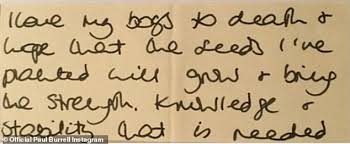 I love my boys to death &
hope that the seeds I've
planted will grow & bring
the strength, knowledge &
stability that is needed
© Official Paul Burrell Instagram